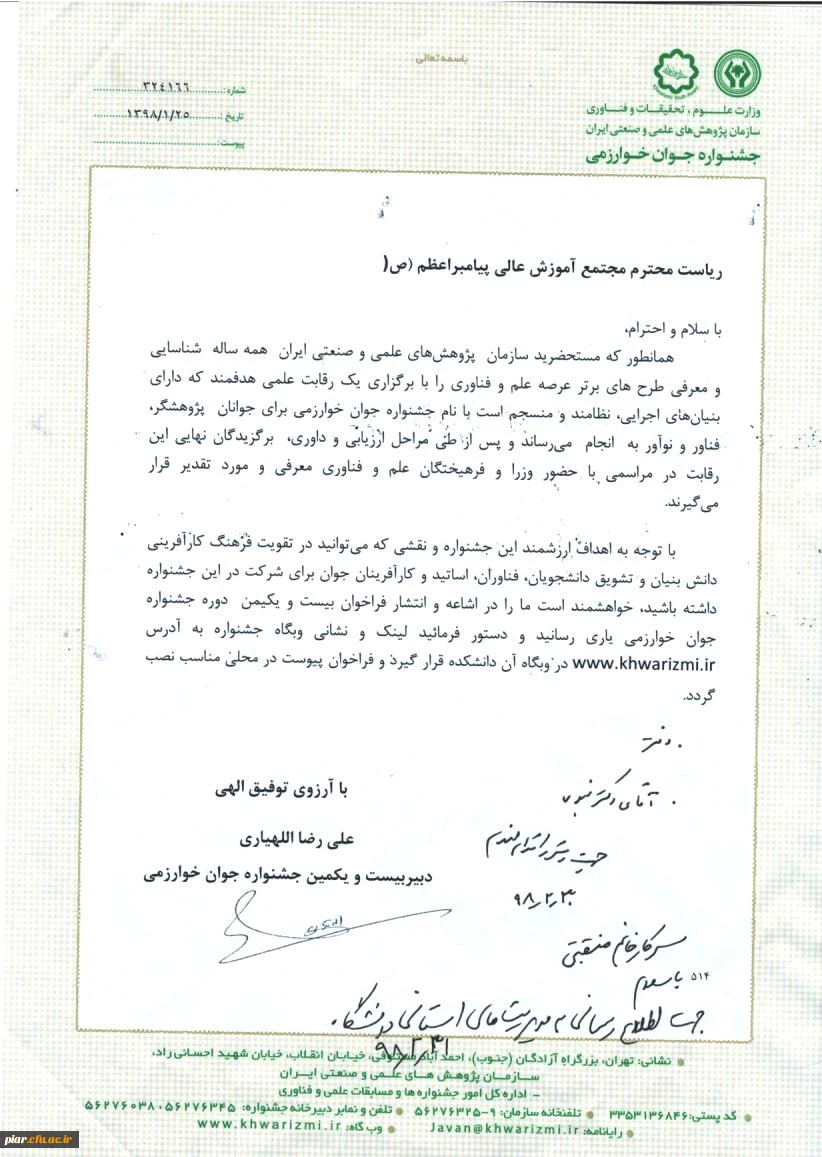 باسمه‌تعالی
وزارت علـــوم، تحقیقـات و فنـــاوری
سازمان پژوهش‌های علمی و صنعتی ایران
جشنـواره جـوان خـوارزمی
شماره: ۳۲٤۱٦٦
تاریخ: ۱۳۹۸/۱/۲۵
پیوست:
ریاست محترم مجتمع آموزش عالی پیامبراعظم (ص(
با سلام و احترام،
همانطور که مستحضرید سازمان پژوهش‌های علمی و صنعتی ایران همه ساله شناسایی
و معرفی طرح های برتر عرصه علم و فناوری را با برگزاری یک رقابت علمی هدفمند که دارای
بنیان‌های اجرایی، نظامند و منسجم است با نام جشنواره جوان خوارزمی برای جوانان پژوهشگر،
فناور و نوآور به انجام می‌رساند و پس از طی مراحل ارزیابی و داوری، برگزیدگان نهایی این
رقابت در مراسمی با حضور وزرا و فرهیختگان علم و فناوری معرفی و مورد تقدیر قرار
می‌گیرند.
با توجه به اهداف ارزشمند این جشنواره و نقشی که می‌توانید در تقویت فرهنگ کارآفرینی
دانش بنیان و تشویق دانشجویان، فناوران، اساتید و کارآفرینان جوان برای شرکت در این جشنواره
داشته باشید، خواهشمند است ما را در اشاعه و انتشار فراخوان بیست و یکیمن دوره جشنواره
جوان خوارزمی یاری رسانید و دستور فرمائید لینک و نشانی وبگاه جشنواره به آدرس
www.khwarizmi.ir در وبگاه آن دانشکده قرار گیرد و فراخوان پیوست در محلی مناسب نصب
گردد.
با آرزوی توفیق الهی
علی رضا اللهیاری
دبیربیست و یکمین جشنواره جوان خوارزمی
آقای دکتر
سرکار خانم منقبتی
۵۱۴ باسلام
جهت اطلاع رسانی به مدیریت های استانی دانشگاه.
۹۸/۲/۳۱
نشانی: تهران، بزرگراه آزادگان (جنوب)، احمد آباد مستوفی، خیـابان انقـلاب، خیابان شهید احسانی راد،
ســازمـان پژوهش هـای علـمی و صنعتی ایـران
– اداره کل امور جشنواره ها و مسابقات علمی و فناوری
کد پستی: ۳۳۵۳۱۳۶۸۴۶ تلفنخانه سازمان: ۹-۵۶۲۷۶۳۲۵ تلفن و نمابر دبیرخانه جشنواره: ۵۶۲۷۶۳۴۵، ۵۶۲۷۶۰۳۸
رایانامه: Javan@khwarizmi.ir وب گاه: www.khwarizmi.ir
piar.cfu.ac.ir